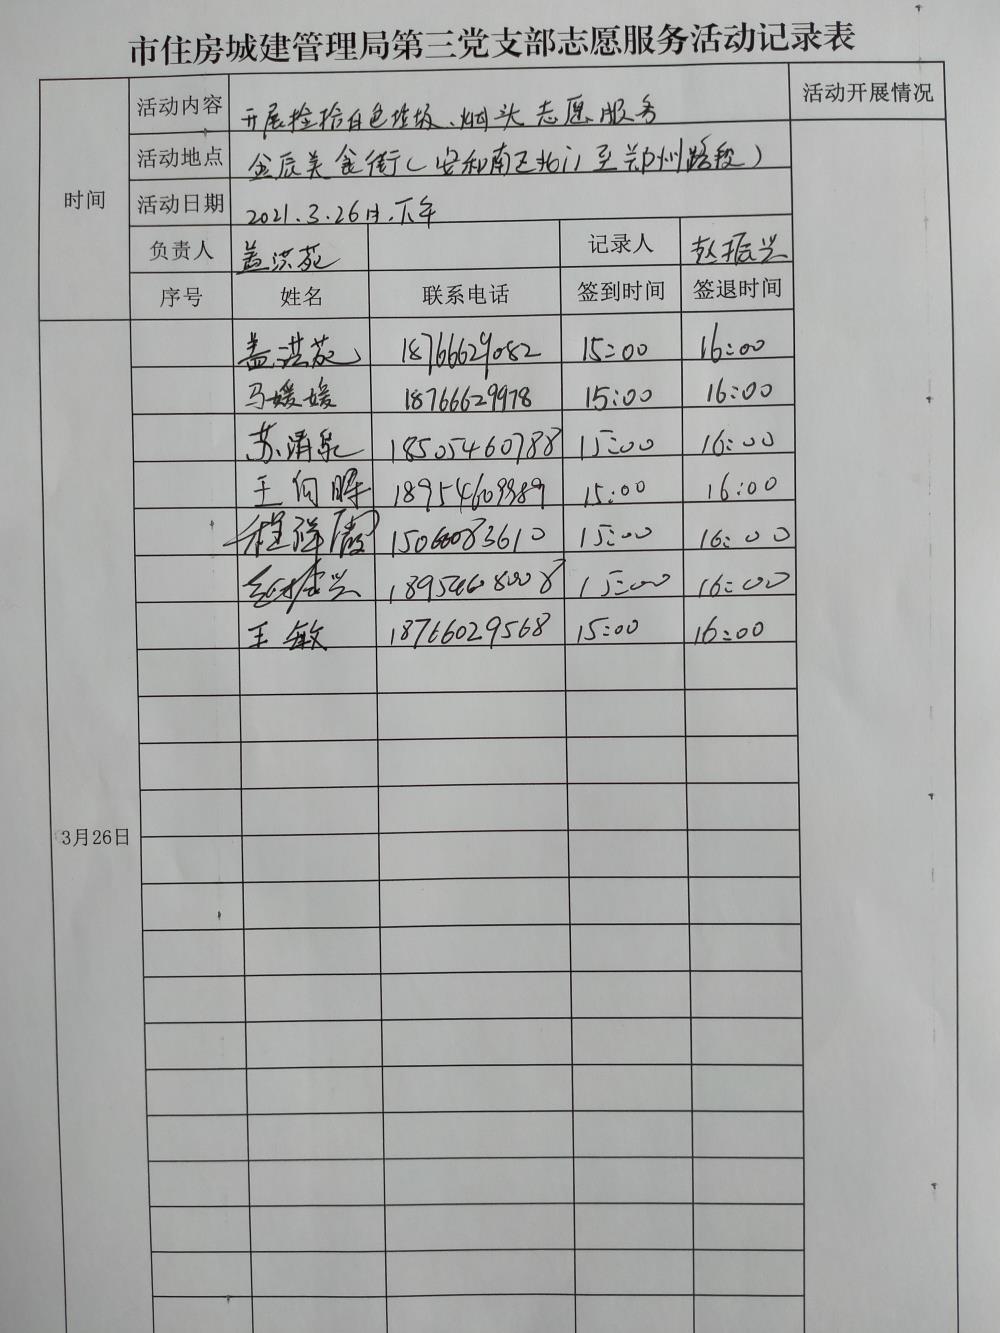 市住房城建管理局第三党支部志愿服务活动记录表
时间 活动内容 开展捡拾白色垃圾、烟头志愿服务 活动开展情况
活动地点 金辰美食街(安和南区北门至郑州路段)
活动日期 2021.3.26日.下午
负责人 盖洪苑 记录人 赵振兴
序号 姓名 联系电话 签到时间 签退时间
盖洪苑 18766629082 15:00 16:00
马媛媛 18766629978 15:00 16:00
苏清泉 18505460788 15:00 16:00
王向晖 18954609989 15:00 16:00
程祥 15:00 16:00
赵振兴 18954608008 15:00 16:00
王敏 18766029568 15:00 16:00
3月26日